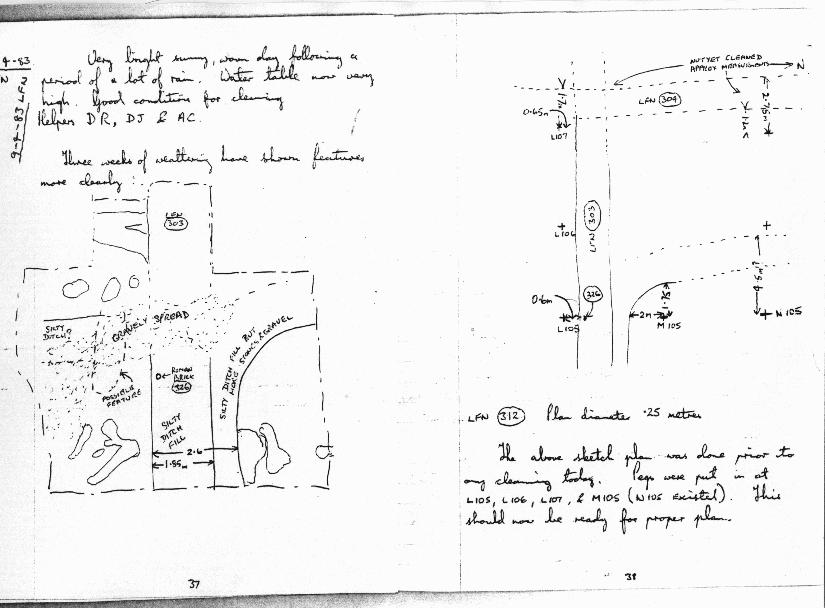 9-4-83 LFN
Very bright sunny, warm day following a
period of a lot of rain. Water table now very
high. Good conditions for cleaning
Helpers DR, DJ & AC.
Three weeks of weathering have shown features
more clearly :-
LFN
303
SILTY
DITCH?
GRAVELY SPREAD
SILTY DITCH FILL BUT
MORE STONES & GRAVEL
ROMAN
BRICK
326
POSSIBLE
FEATURE
SILTY
DITCH
FILL
2.6
1.55m
37
NOT YET CLEANED
APPROX MEASUREMENTS
N
LFN 304
1.7m
0.65m
L107
1.2m
2.75m
L106
LFN 303
326
0.6m
L105
2m
1.75
M105
4.5m?
N105
LFN 312 Plan diameter .25 metres
The above sketch plan was done prior to
any cleaning today. Pegs were put in at
L105, L106, L107, & M105 (N105 existed). This
should now be ready for proper plan.
38